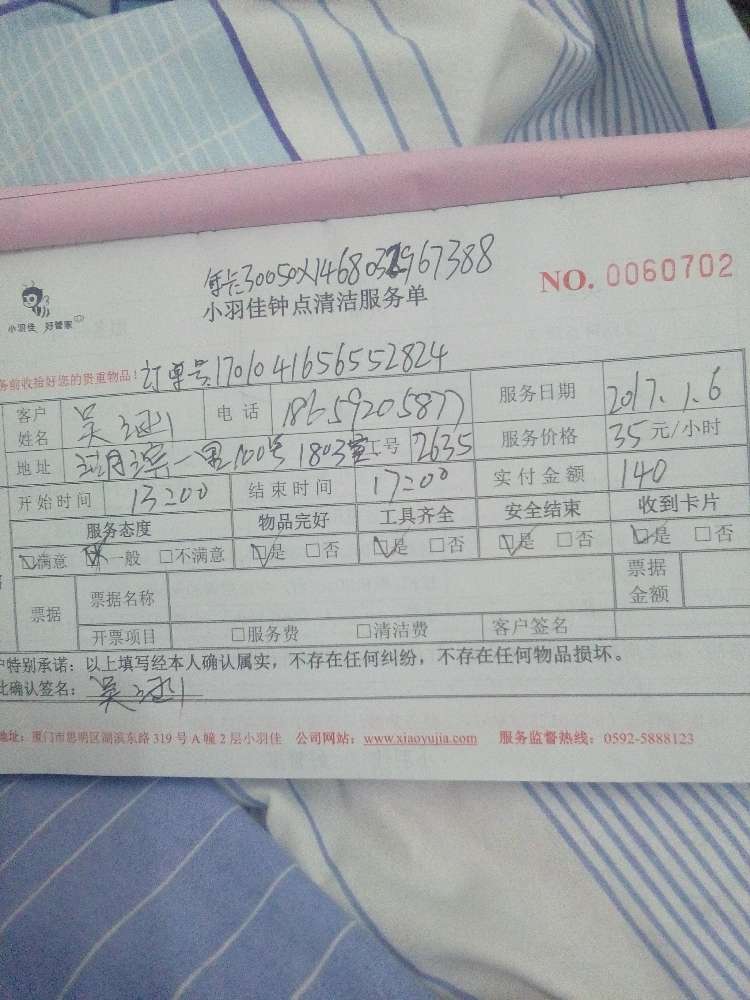 年卡30050X1468032967388
NO. 0060702
小羽佳 好管家
小羽佳钟点清洁服务单
务前收拾好您的贵重物品! 订单号17010416565 52824
客户姓名 吴 电话 18659205877 服务日期 2017.1.6
地址 一里100号1803室 工号 2635 服务价格 35元/小时
开始时间 13:00 结束时间 17:00 实付金额 140
服务态度 物品完好 工具齐全 安全结束 收到卡片
☑满意 ☑一般 □不满意 ☑是 □否 ☑是 □否 ☑是 □否 ☑是 □否
票据 票据名称 票据金额
开票项目 □服务费 □清洁费 客户签名
户特别承诺:以上填写经本人确认属实,不存在任何纠纷,不存在任何物品损坏。
此确认签名: 吴
地址:厦门市思明区湖滨东路319号A幢2层小羽佳 公司网站:www.xiaoyujia.com 服务监督热线:0592-5888123